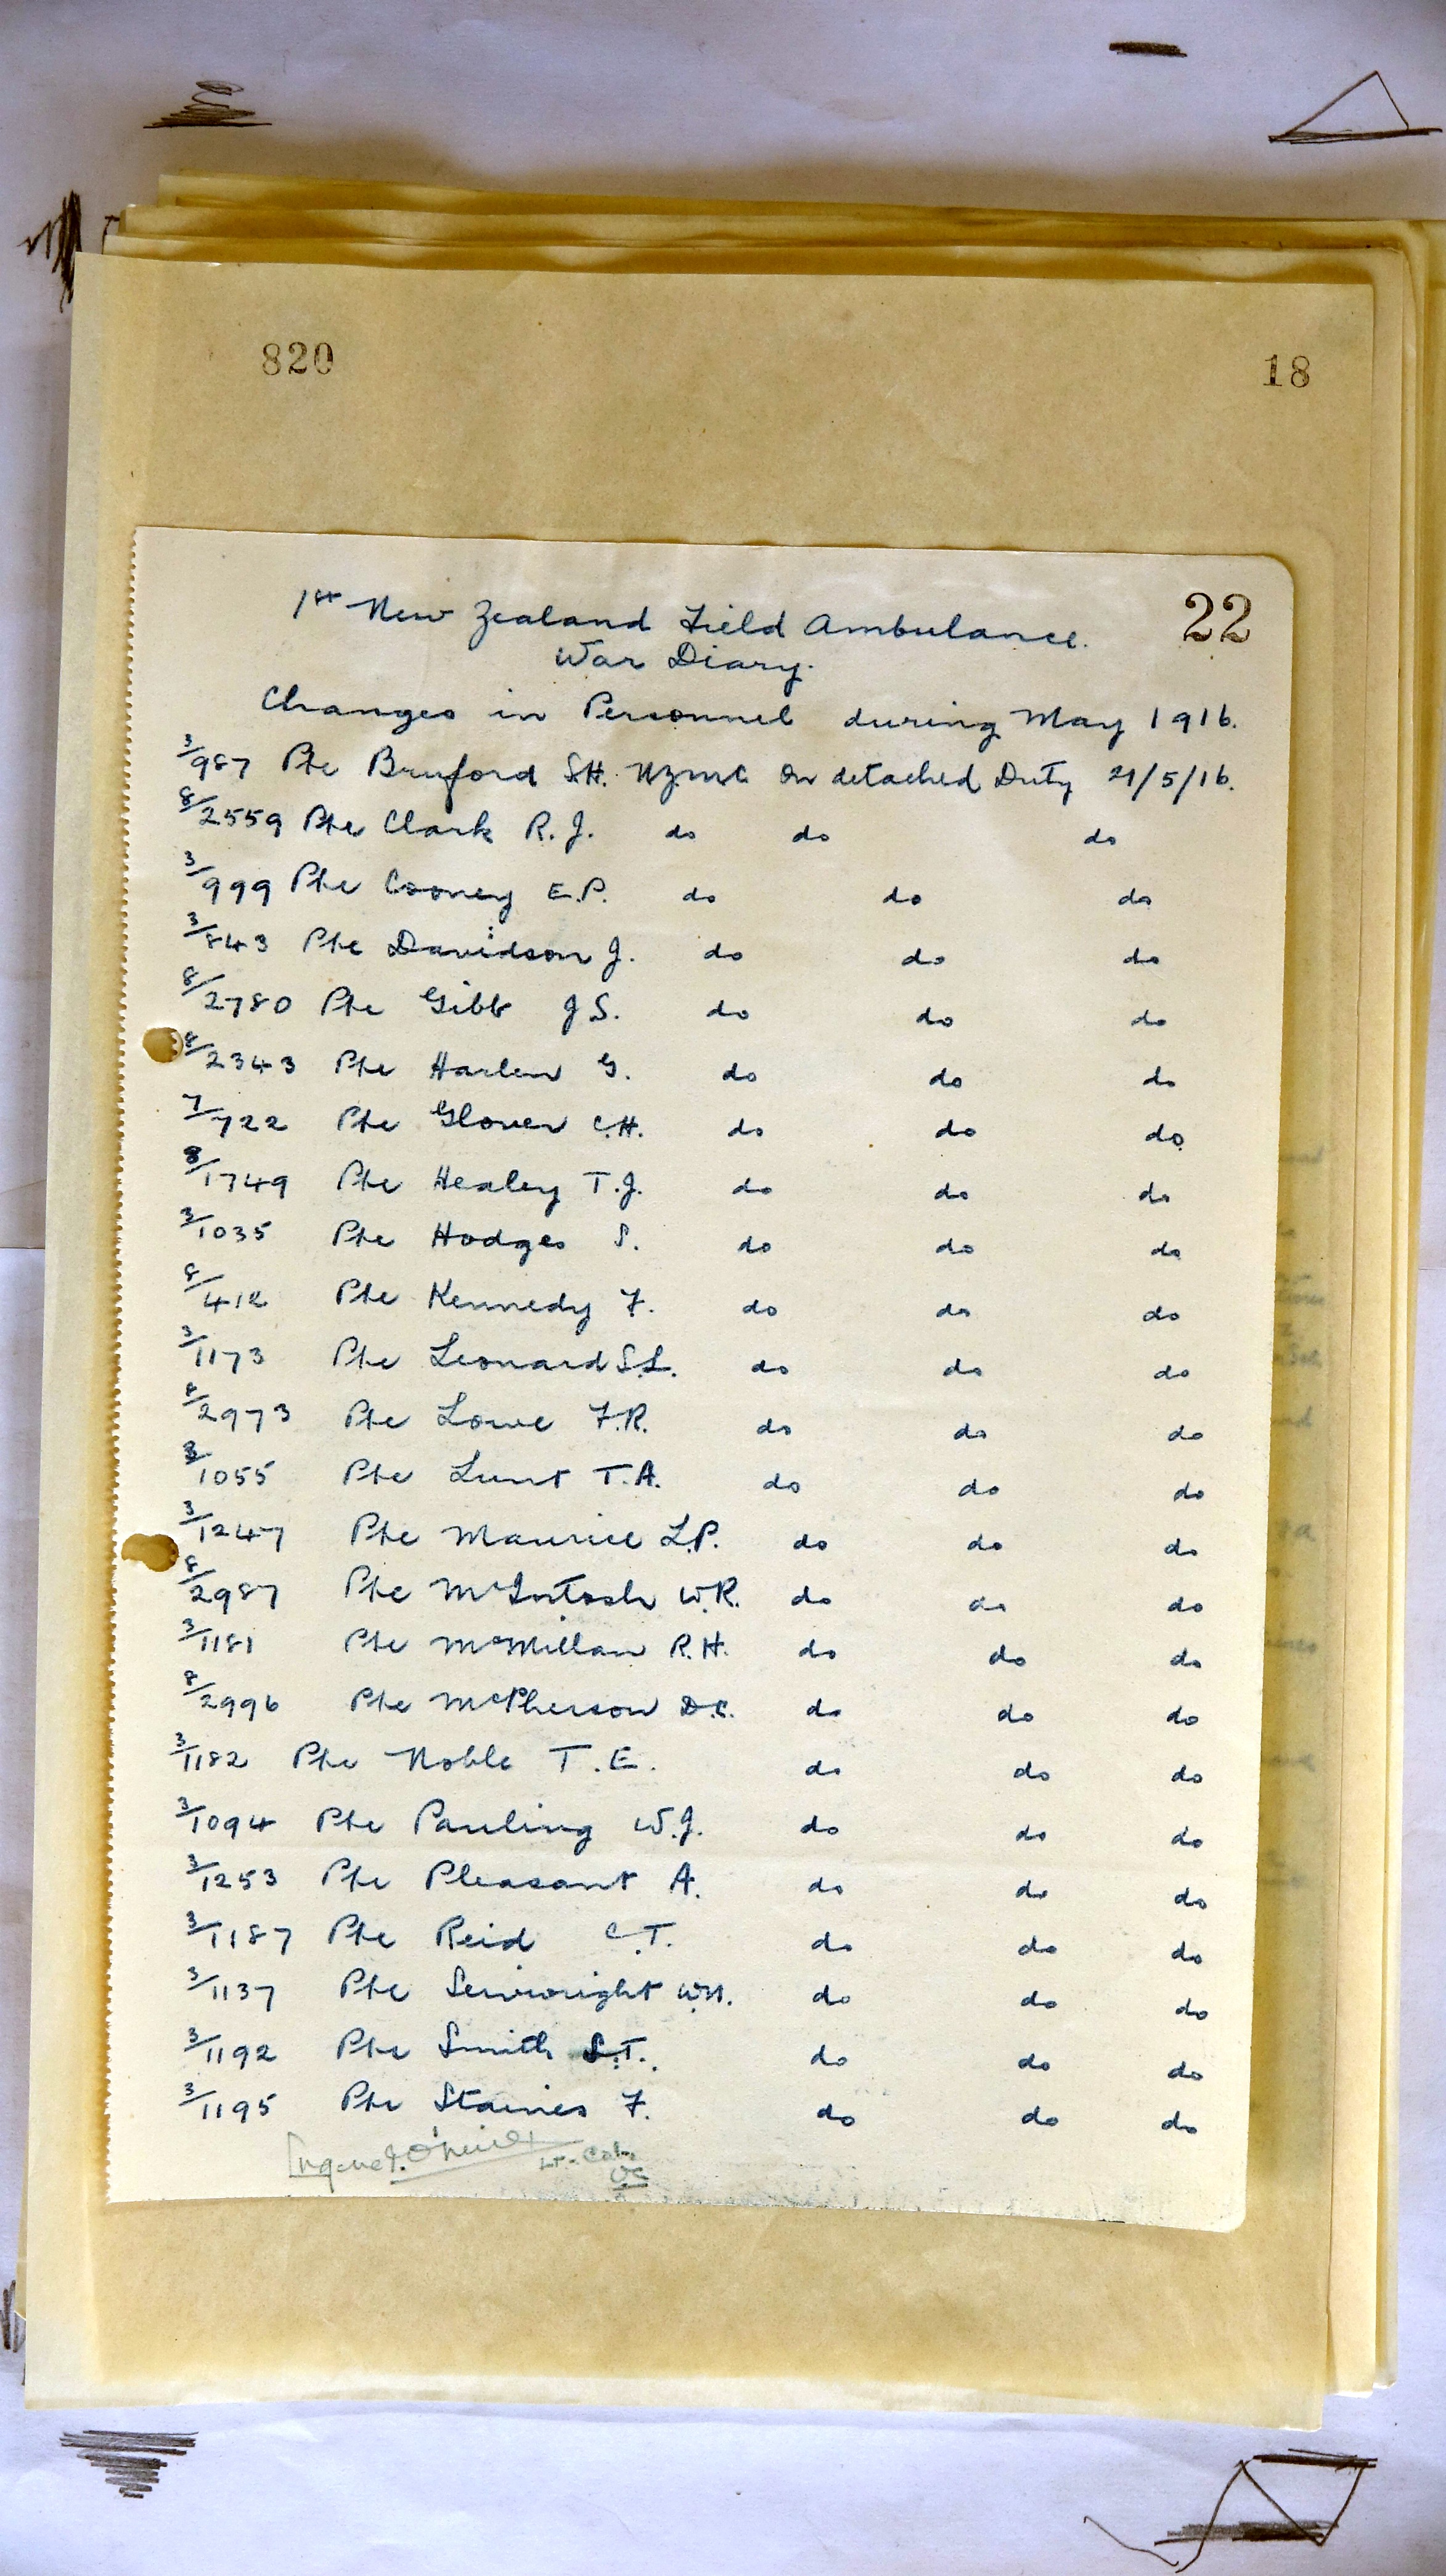 820 18
22
1st New Zealand Field Ambulance.
War Diary.
Changes in Personnel during May 1916.
3/987 Pte Bruford S.H. NZMC On detached Duty 21/5/16.
8/2559 Pte Clark R.J. do do do
3/999 Pte Cooney E.P. do do do
3/843 Pte Davidson J. do do do
8/2780 Pte Gibb J S. do do do
8/2343 Pte Harlen G. do do do
7/722 Pte Glover C.H. do do do
8/1749 Pte Healey T.J. do do do
3/1035 Pte Hodges S. do do do
8/412 Pte Kennedy F. do do do
3/1173 Pte Leonard S.L. do do do
8/2973 Pte Lowe F.R. do do do
3/1055 Pte Lunt T.A. do do do
3/1247 Pte Maurice L.P. do do do
8/2987 Pte McIntosh W.R. do do do
3/1181 Pte McMillan R.H. do do do
8/2996 Pte McPherson D.C. do do do
3/1182 Pte Noble T.E. do do do
3/1094 Pte Pauling W.J. do do do
3/1253 Pte Pleasant A. do do do
3/1187 Pte Reid C.T. do do do
3/1137 Pte Senwright W.H. do do do
3/1192 Pte Smith S.T. do do do
3/1195 Pte Staines F. do do do
J. O'Neill Lt-Col.
OC